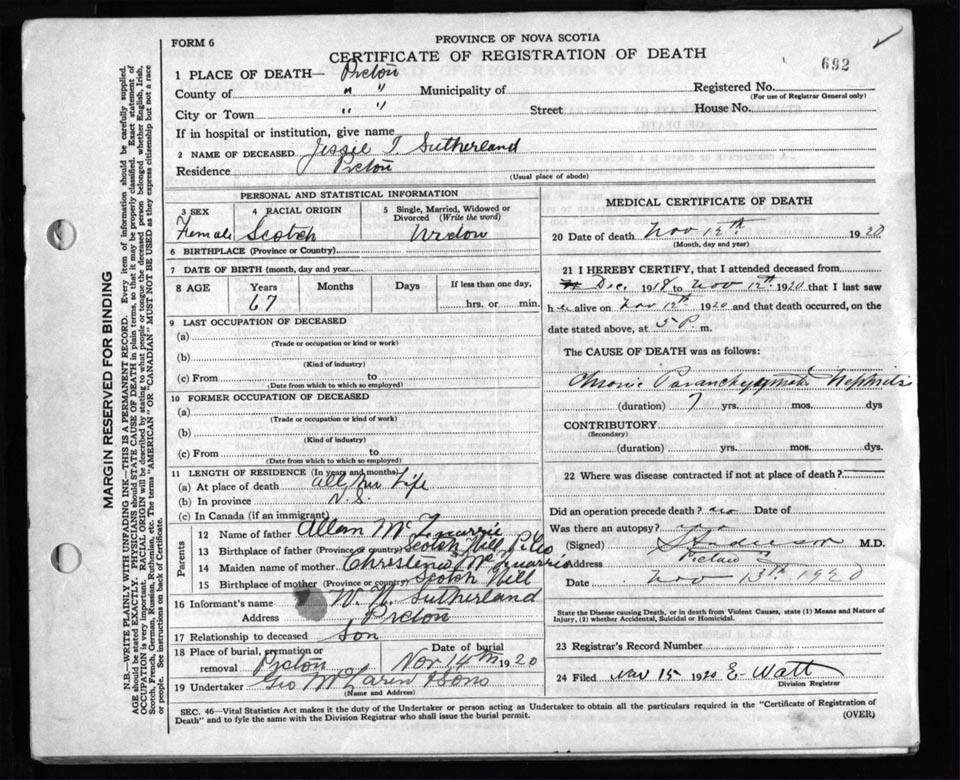 FORM 6
PROVINCE OF NOVA SCOTIA
CERTIFICATE OF REGISTRATION OF DEATH
692
1 PLACE OF DEATH— Pictou
County of " " Municipality of Registered No.
(For use of Registrar General only)
City or Town " " Street House No.
If in hospital or institution, give name
2 NAME OF DECEASED Jessie T. Sutherland
Residence Pictou
(Usual place of abode)
PERSONAL AND STATISTICAL INFORMATION
3 SEX 4 RACIAL ORIGIN 5 Single, Married, Widowed or Divorced (Write the word)
Female Scotch Widow
6 BIRTHPLACE (Province or Country)
7 DATE OF BIRTH (month, day and year)
8 AGE Years Months Days If less than one day,
67 hrs. or min.
9 LAST OCCUPATION OF DECEASED
(a)
(Trade or occupation or kind or work)
(b)
(Kind of industry)
(c) From to
(Date from which to which so employed)
10 FORMER OCCUPATION OF DECEASED
(a)
(Trade or occupation or kind of work)
(b)
(Kind of industry)
(c) From to
(Date from which to which so employed)
11 LENGTH OF RESIDENCE (In years and months)
(a) At place of death all her Life
(b) In province N.S.
(c) In Canada (if an immigrant)
Parents
12 Name of father Allan
13 Birthplace of father (Province or country) Scotch Hill
14 Maiden name of mother Christena
15 Birthplace of mother (Province or country) Scotch Hill
16 Informant's name W. N. Sutherland
Address Pictou
17 Relationship to deceased Son
18 Place of burial, cremation or removal Pictou Date of burial Nov 14th 1920
19 Undertaker Geo McLaren & Sons
(Name and Address)
MEDICAL CERTIFICATE OF DEATH
20 Date of death Nov 12th 1920
(Month, day and year)
21 I HEREBY CERTIFY, that I attended deceased from
Dec. 1918 to Nov 12th 1920 that I last saw
her alive on Nov 12th 1920 and that death occurred, on the
date stated above, at 5 P. m.
The CAUSE OF DEATH was as follows:
Chronic Nephritis
(duration) 7 yrs. mos. dys
CONTRIBUTORY
(Secondary)
(duration) yrs. mos. dys.
22 Where was disease contracted if not at place of death?
Did an operation precede death? no Date of
Was there an autopsy? no
(Signed) M.D.
Address Pictou
Date Nov 13th 1920
State the Disease causing Death, or in death from Violent Causes, state (1) Means and Nature of
Injury, (2) whether Accidental, Suicidal or Homicidal.
23 Registrar's Record Number
24 Filed Nov 15 1920 E. Watt
Division Registrar
SEC. 46—Vital Statistics Act makes it the duty of the Undertaker or person acting as Undertaker to obtain all the particulars required in the "Certificate of Registration of
Death" and to fyle the same with the Division Registrar who shall issue the burial permit.
(OVER)
MARGIN RESERVED FOR BINDING
N.B.—WRITE PLAINLY WITH UNFADING INK—THIS IS A PERMANENT RECORD. Every item of information should be carefully supplied.
AGE should be stated EXACTLY. PHYSICIANS should STATE CAUSE OF DEATH in plain terms, so that it may be properly classified. Exact statement of
OCCUPATION is very important. RACIAL ORIGIN will be described by stating to what people or tongue the deceased person belonged whether English, Irish,
Scotch, French, German, Russian, Ruthenian, etc. The terms "AMERICAN" OR "CANADIAN" MUST NOT BE USED as they express citizenship but not a race
or people. See instructions on back of Certificate.